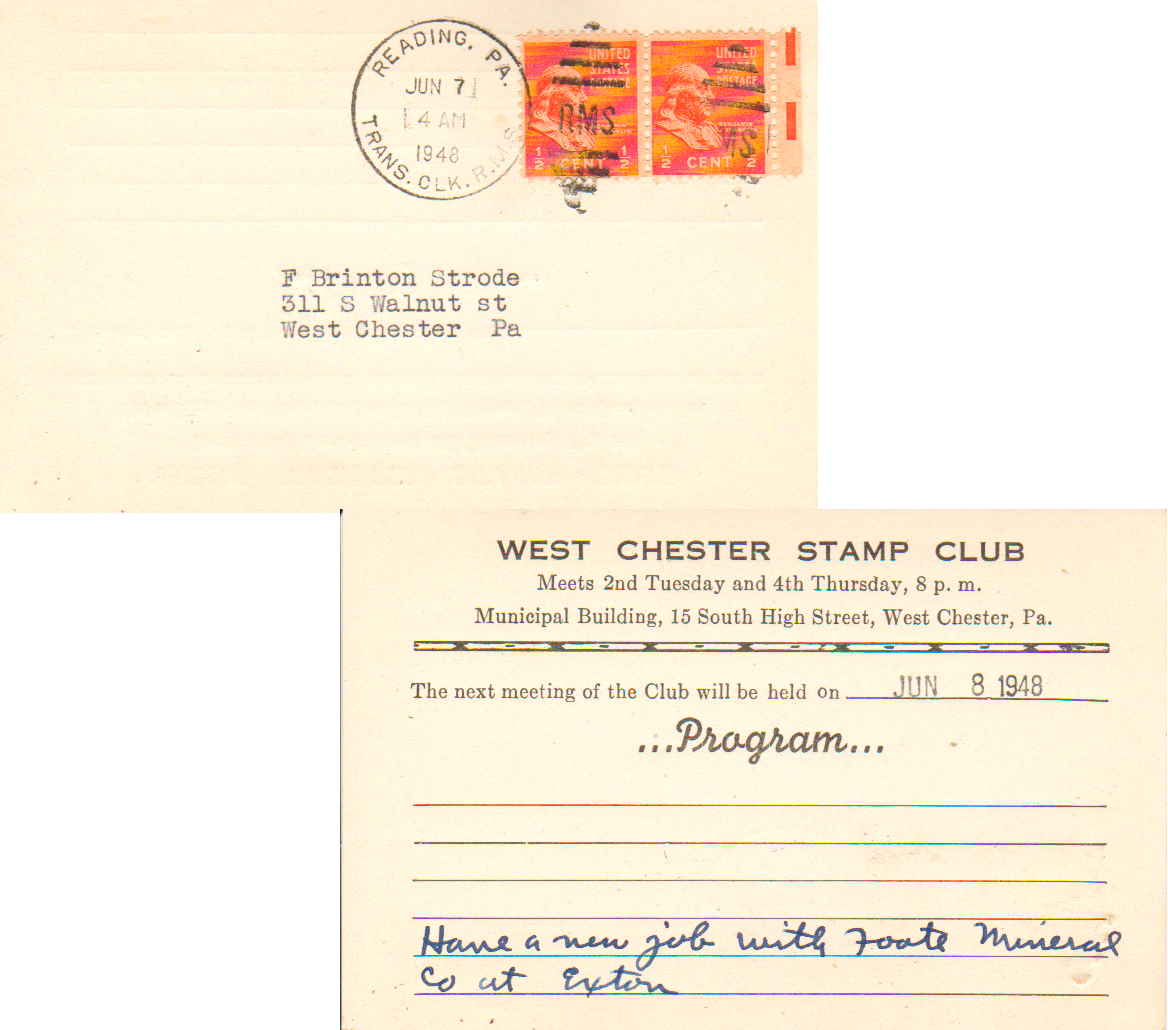 READING, PA.
JUN 7
4 AM
1948
TRANS. CLK. R.M.S.
UNITED STATES
UNITED STATES POSTAGE
RMS
MS
1/2 CENT 1/2
1/2 CENT 1/2
F Brinton Strode
311 S Walnut st
West Chester Pa
WEST CHESTER STAMP CLUB
Meets 2nd Tuesday and 4th Thursday, 8 p. m.
Municipal Building, 15 South High Street, West Chester, Pa.
The next meeting of the Club will be held on JUN 8 1948
...Program...
Have a new job with Foote Mineral
Co at Exton